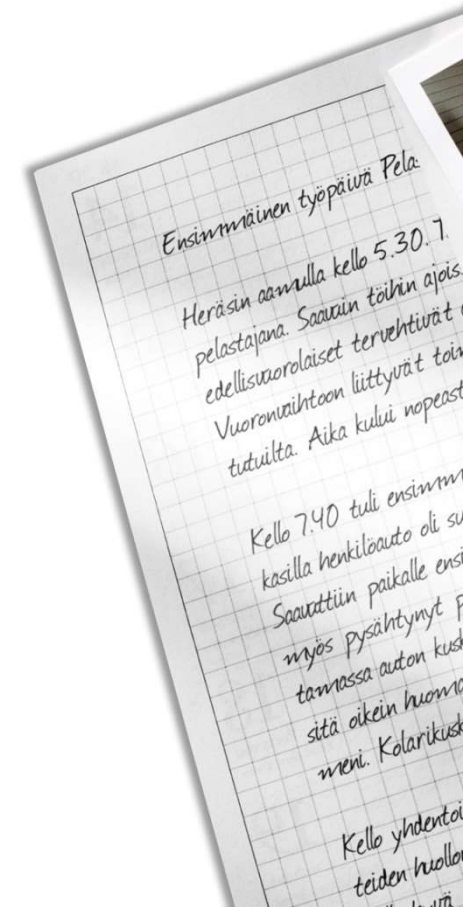 Ensimmäinen työpäivä Pela
Heräsin aamulla kello 5.30. T
pelastajana. Saavuin töihin ajois
edellisvuorolaiset tervehtivät
Vuoronvaihtoon liittyvät toim
tutuilta. Aika kului nopeast
Kello 7.40 tuli ensimm
kasilla henkilöauto oli su
Saavuttiin paikalle ensi
myös pysähtynyt p
tamassa auton kusk
sitä oikein huoma
meni. Kolarikusk
Kello yhdentoi
teiden huollon